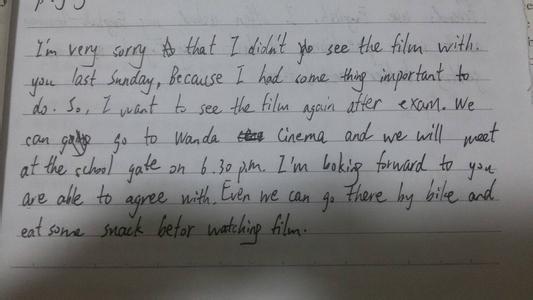 I'm very sorry that I didn't see the film with
you last Sunday, Because I had some thing important to
do. So, I want to see the film again after exam. We
can go to Wanda Cinema and we will meet
at the school gate on 6.30 p.m. I'm looking forward to you
are able to agree with. Even we can go There by bike and
eat some snack befor watching film.